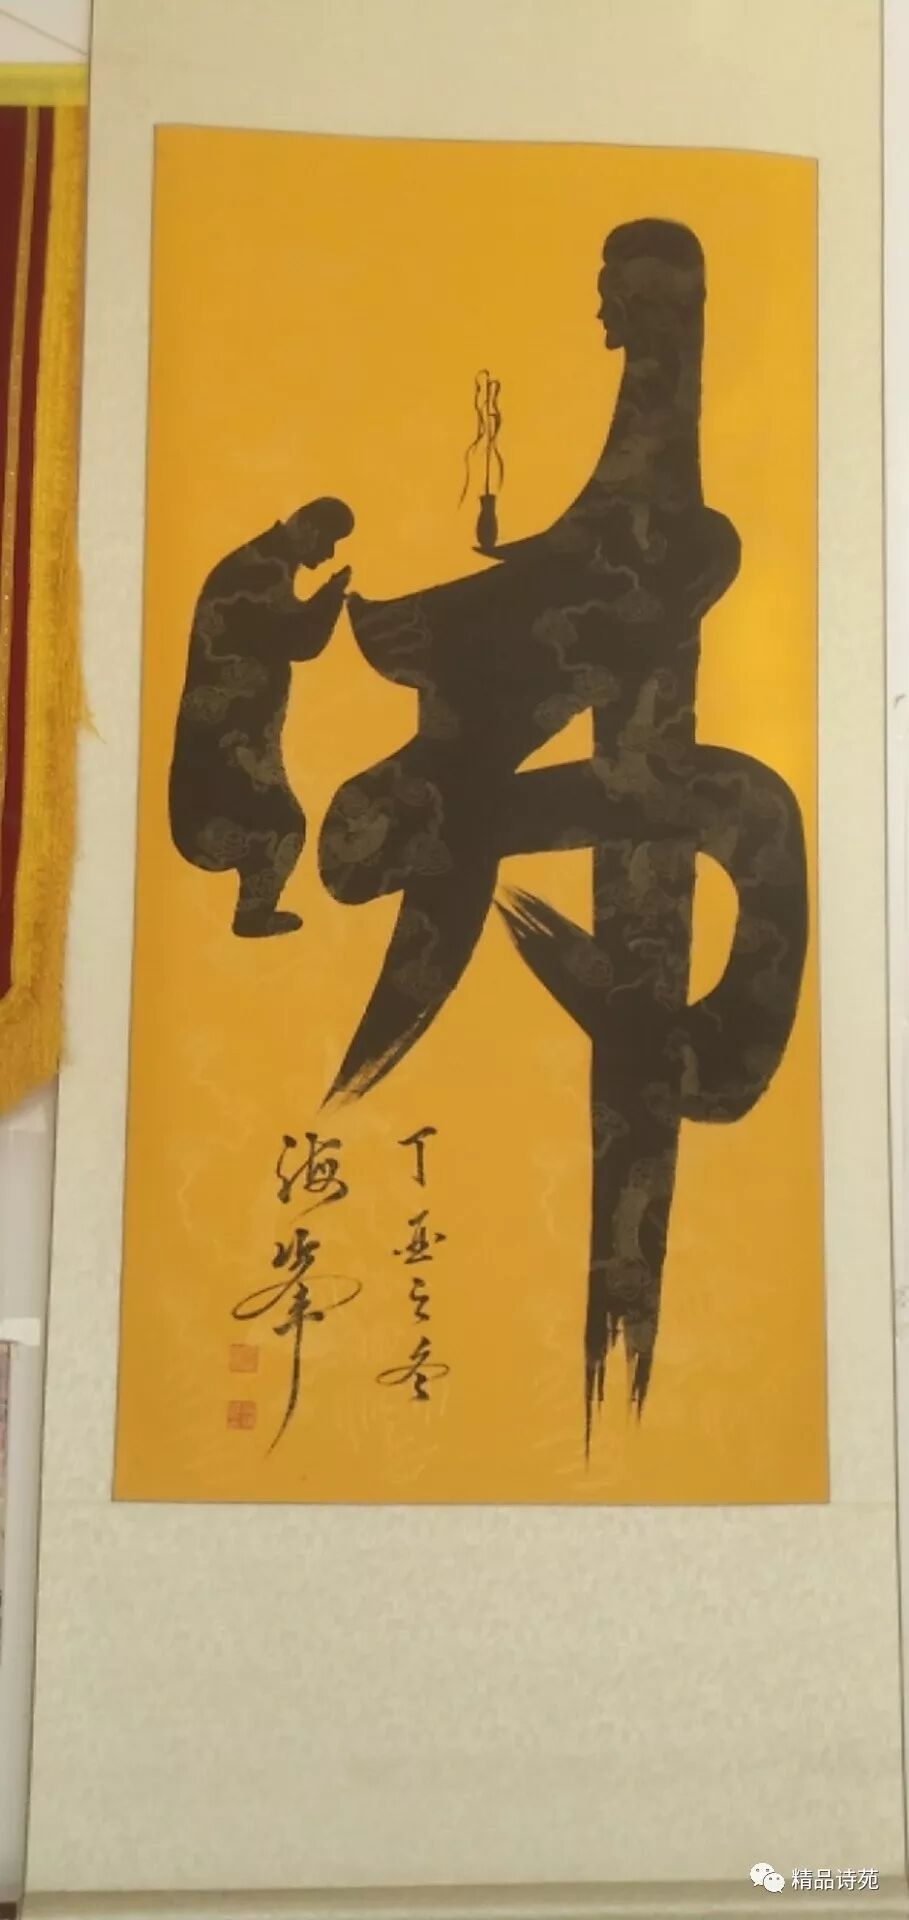 佛
丁亥之冬
海峰
精品诗苑